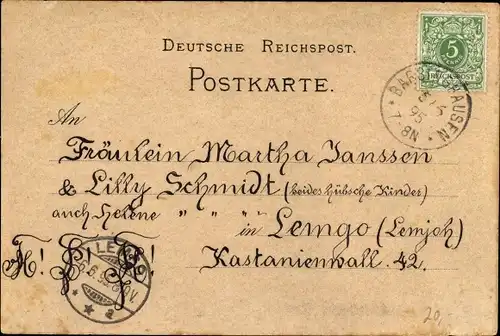 DEUTSCHE REICHSPOST.
POSTKARTE.
5
PFENNIG
REICHSPOST
7-8N
An
Fräulein Martha Janssen
& Lilly Schmidt (beides hübsche Kinder)
auch Helene " " " "
in Lemgo (Lemjoh)
Kastanienwall 42.
LEMGO
20,-